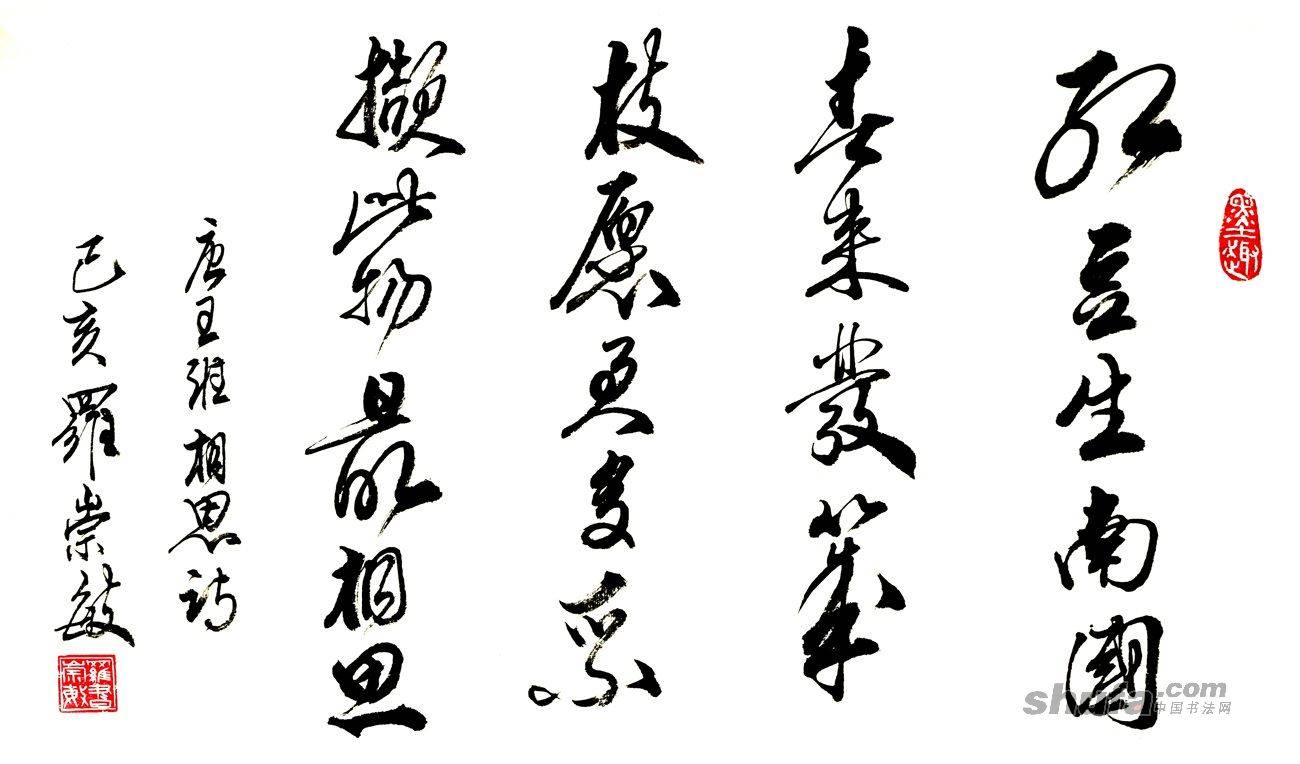 墨趣
红豆生南國
春来發幾
枝愿君多采
撷此物最相思
唐王维相思诗
己亥羅崇敏
羅崇敏書
shufa.com
中国书法网